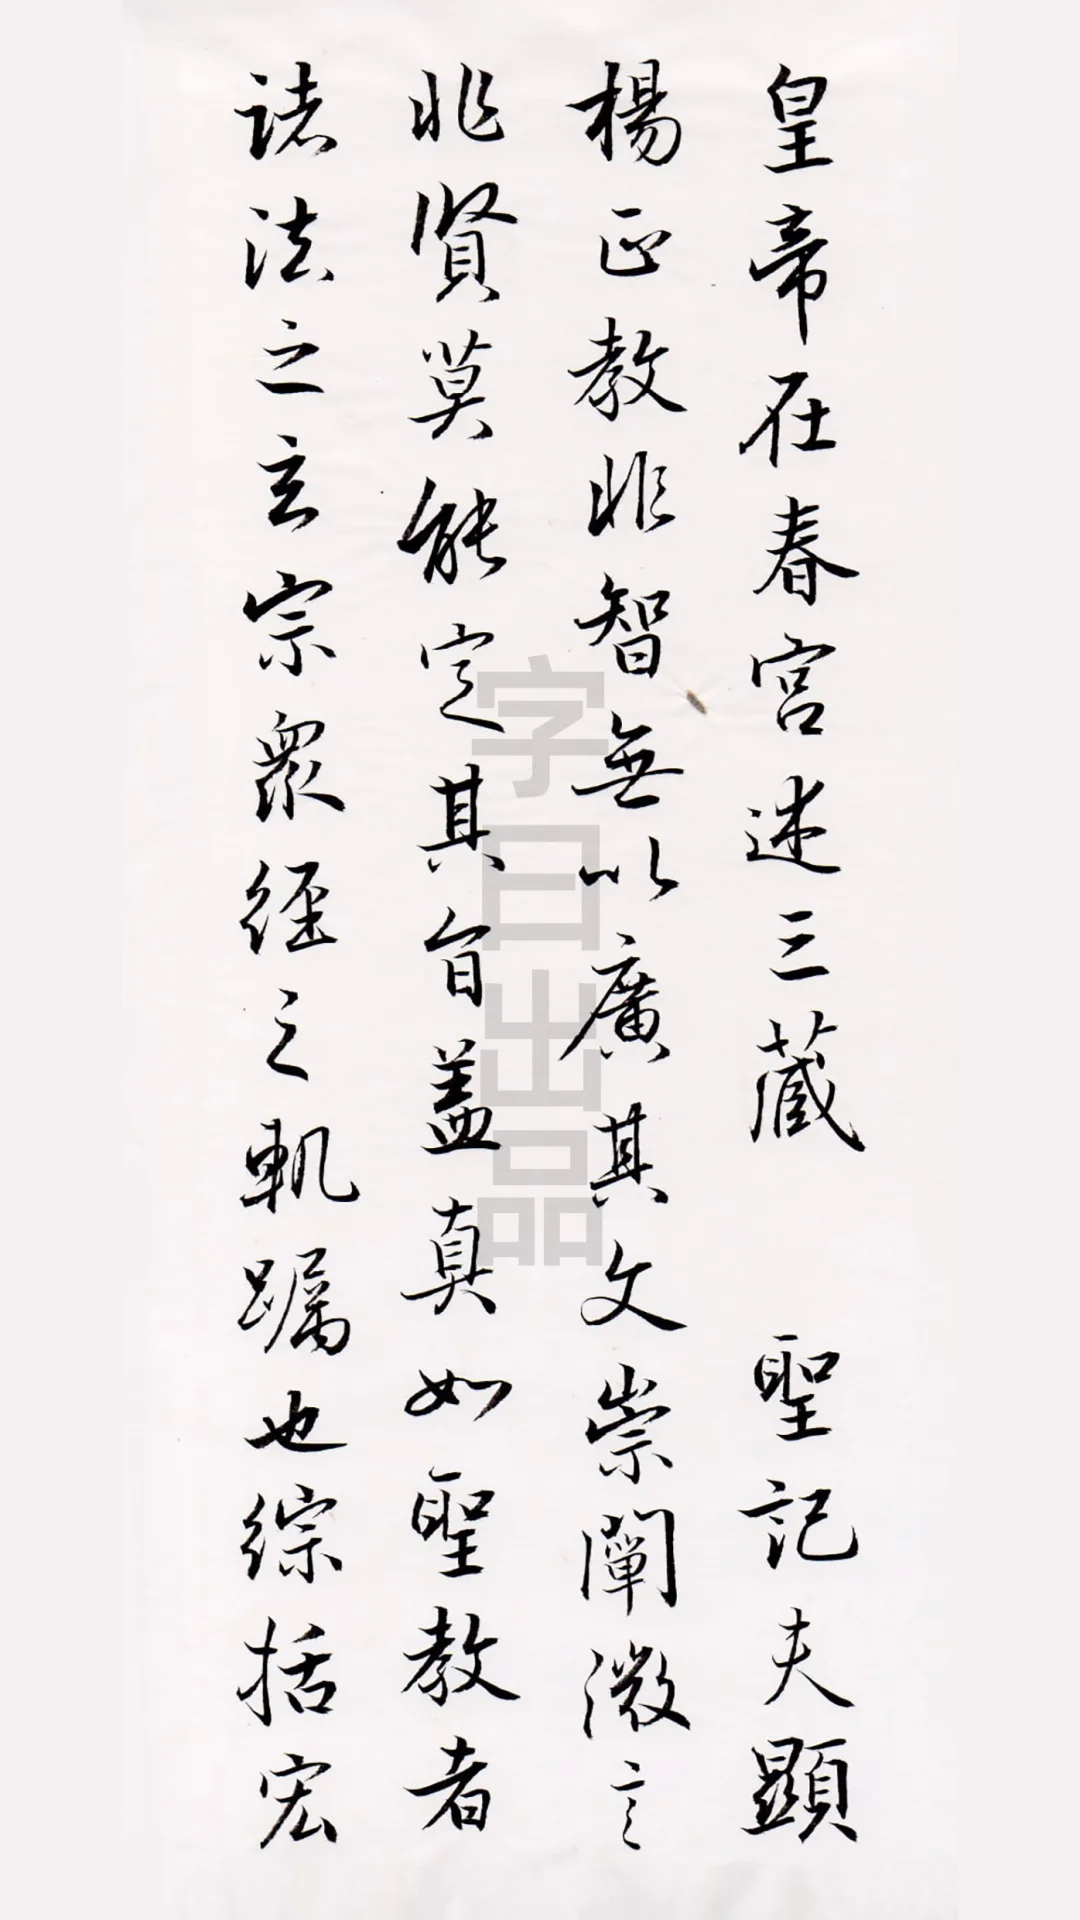 皇帝在春宮述三藏 聖記夫顯
楊正教非智無以廣其文崇闡微言
非賢莫能定其旨盖真如聖教者
諸法之玄宗衆經之軌躅也綜括宏
字曰出品